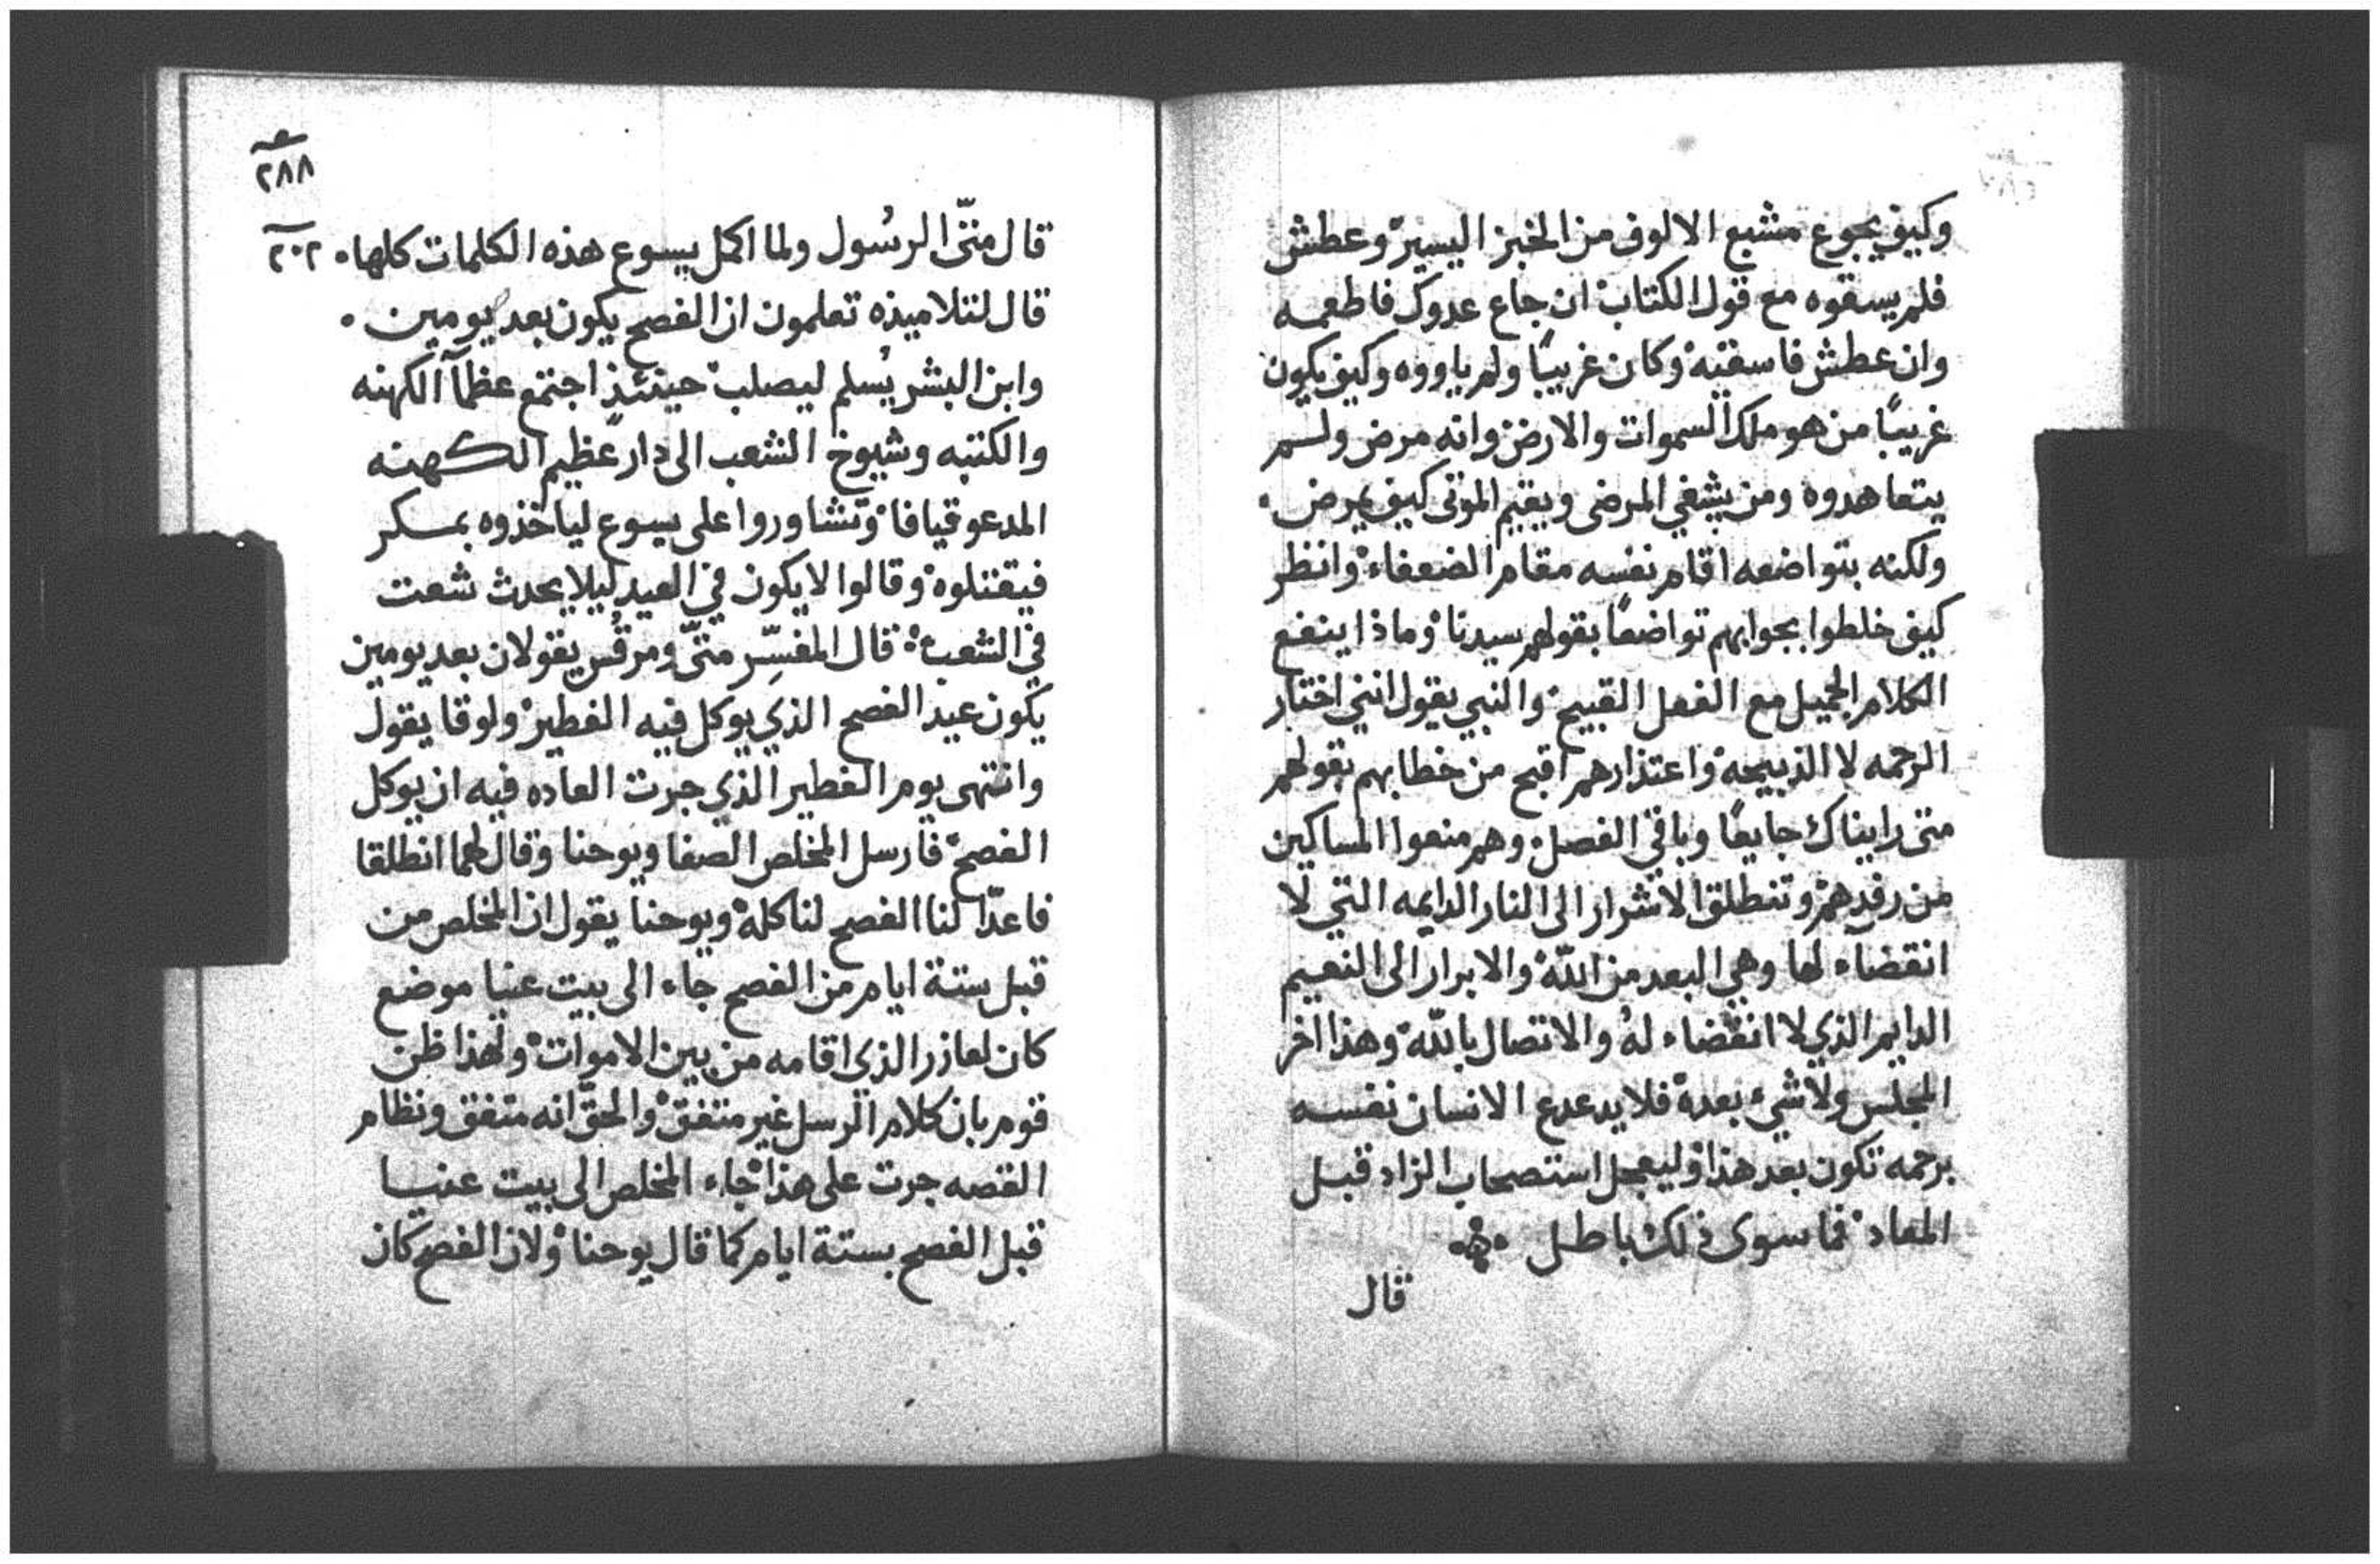 وكيف يجوع مشبع الالوف من الخبز اليسير وعطش
فلم يسقوه مع قول الكتاب ان جاع عدوك فاطعمه
وان عطش فاسقيه وكان غريبًا ولم ياووه وكيف يكون
غريبًا من هو ملك السموات والارض وانه مرض ولم
يتعاهدوه ومن يشفي المرضى ويقيم الموتى كيف يمرض ۰
ولكنه بتواضعه اقام نفسه مقام الضعفاء وانظر
كيف خلطوا بجوابهم تواضعًا بقولهم سيدنا وماذا ينفع
الكلام الجميل مع الفعل القبيح والنبي يقول انني اختار
الرحمه لا الذبيحه واعتذارهم اقبح من خطابهم بقولهم
متى رايناك جايعًا وباقي الفصل وهم منعوا المساكين
من رفدهم وتنطلق الاشرار الى النار الدايمه التي لا
انقضاء لها وهي البعد من اللّه والابرار الى النعيم
الدايم الذي لا انقضاء لهُ والاتصال باللّه وهذا اخر
المجلس ولا شيء بعده فلا يدعدع الانسان نفسه
برحمه تكون بعد هذا وليعجل استصحاب الزاد قبل
المعاد فما سوى ذلك باطل
قال
٢٨٨
قال متّى الرسُول ولما اكمل يسوع هذه الكلمات كلها ۰ ٢٠٢
قال لتلاميذه تعلمون ان الفصح يكون بعد يومين ۰
وابن البشر يُسلم ليصلب حينئذٍ اجتمع عظمآ الكهنه
والكتبه وشيوخ الشعب الى دار عظيم الكهنه
المدعو قيافا وتشاوروا على يسوع لياخذوه بمكر
فيقتلوه وقالوا لا يكون في العيد ليلا يحدث شعت
في الشعب قال المفسِّر متّى ومرقس يقولان بعد يومين
يكون عيد الفصح الذي يوكل فيه الفطير ولوقا يقول
وانتهى يوم الفطير الذي جرت العاده فيه ان يوكل
الفصح فارسل المخلص الصفا ويوحنا وقال لهما انطلقا
فاعدّا لنا الفصح لناكله ويوحنا يقول ان المخلص من
قبل ستة ايام من الفصح جاء الى بيت عنيا موضع
كان لعازر الذي اقامه من بين الاموات ولهذا ظن
قوم بان كلام الرسل غير متفق والحقّ انه متفق ونظام
القصه جرت على هذا جاء المخلص الى بيت عنيا
قبل الفصح بستة ايام كما قال يوحنا ولان الفصح كان